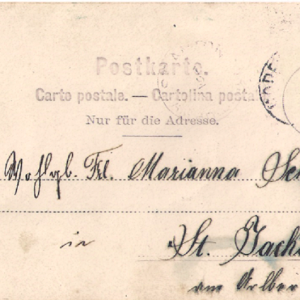 Postkarte.
Carte postale. — Cartolina posta
Nur für die Adresse.
Wohlgb. Frl. Marianna Sch
in
St. Jacho
am Arlber